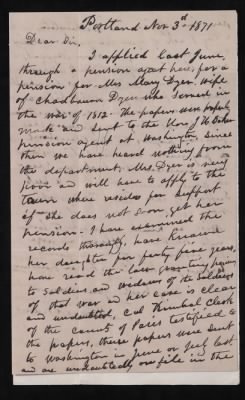 Portland Nov 3d 1871
Dear Sir,
I applied last June
through a pension agent here, for a
pension for Mrs Mary Dyer, wife
of Dyer who served in
the war of 1812. The papers were properly
made and sent to the Hon J H
pension agent at Washington since
then we have heard nothing from
the department. Mrs. Dyer is very
poor and will have to apply to the
town where resides for support
if she does not soon get her
pension. I have examined the
records have known
her daughter for forty five years,
have read the law granting pensions
to soldiers and widows of the soldiers
of that war and her case is clear
and undoubted, Col Kimbal Clerk
of the county of Paris testified to
the papers, these papers were sent
to Washington in June or July last
and are undoubtedly on file in the